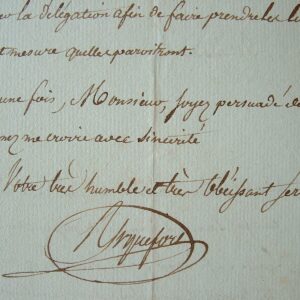 la délégation afin de faire prendre les
et mesure quelles paroitront.
une fois, Monsieur, soyez persuadé de
me croire avec sincérité
Votre très humble et très obéissant ser
Roquefort